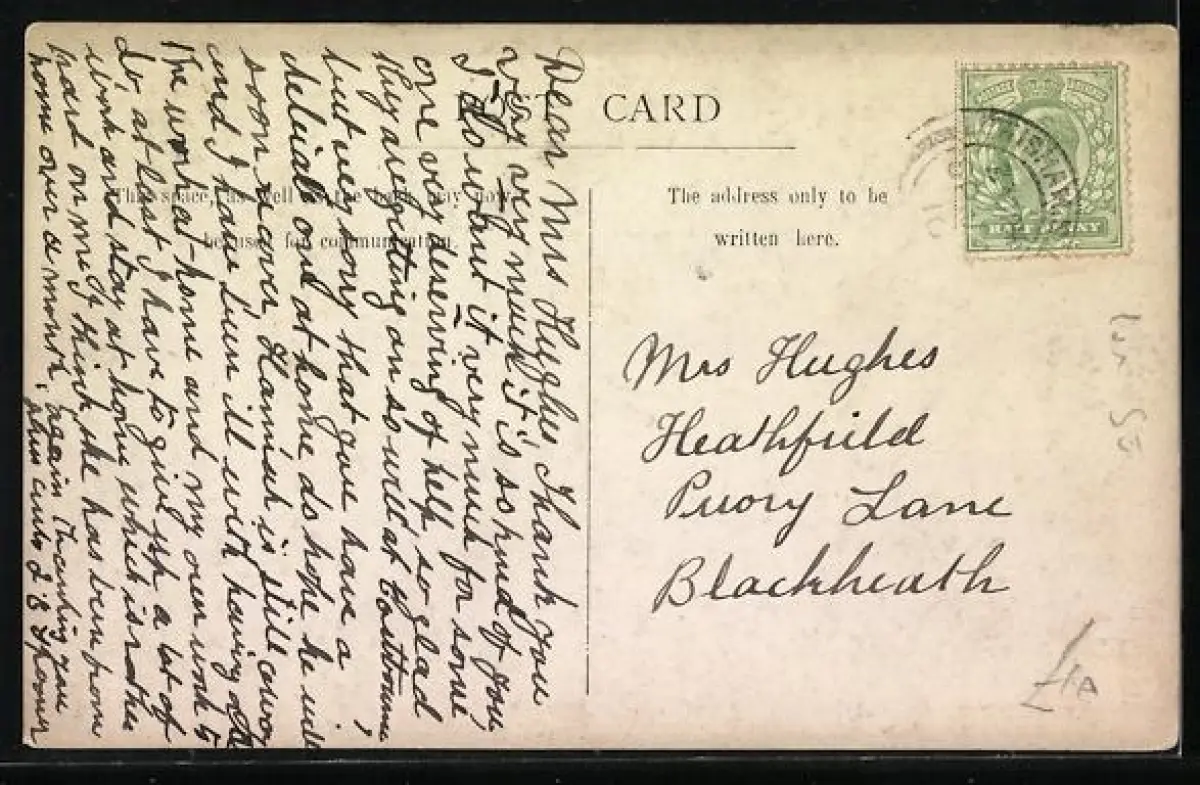 POST CARD
This space, as well as the back, may now
be used for communication.
The address only to be
written here.
HALF PENNY
Mrs Hughes
Heathfield
Priory Lane
Blackheath
Dear Mrs Hughes, Thank you
very very much it is so kind of you,
I do want it very much for some
one very deserving of help, so glad
they are getting on so well at Eastbourne
but very sorry that you have a
delicate one at home do hope he will
soon
recover, Hannah is still away
and I have been ill with having all
the work at home and my own work to
do at last I have to give up a lot of
work and stay at home which is rather
hard on me I think she has been from
home over a month, again thanking you